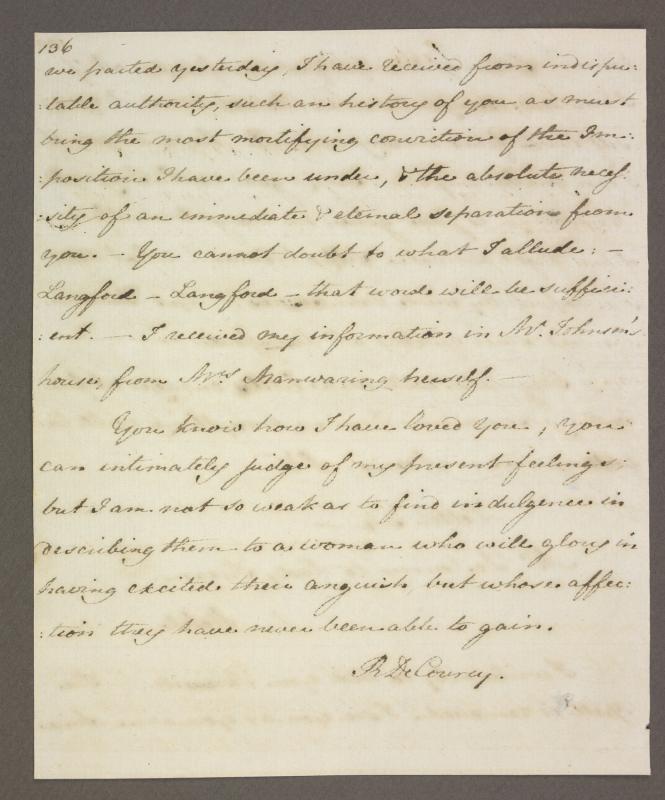 136
we parted yesterday, I have received from indispu:
:table authority, such an history of you as must
bring the most mortifying conviction of the Im:
:position I have been under, & the absolute neces:
:sity of an immediate & eternal separation from
you. — You cannot doubt to what I allude: —
Langford — Langford — that word will be suffici:
:ent. — I received my information in Mr. Johnson's
house, from Mrs Manwaring herself. —
You know how I have loved you, you
can intimately judge of my present feelings;
but I am not so weak as to find indulgence in
describing them to a woman who will glory in
having excited their anguish, but whose affec:
:tion they have never been able to gain.
R De Courcy.